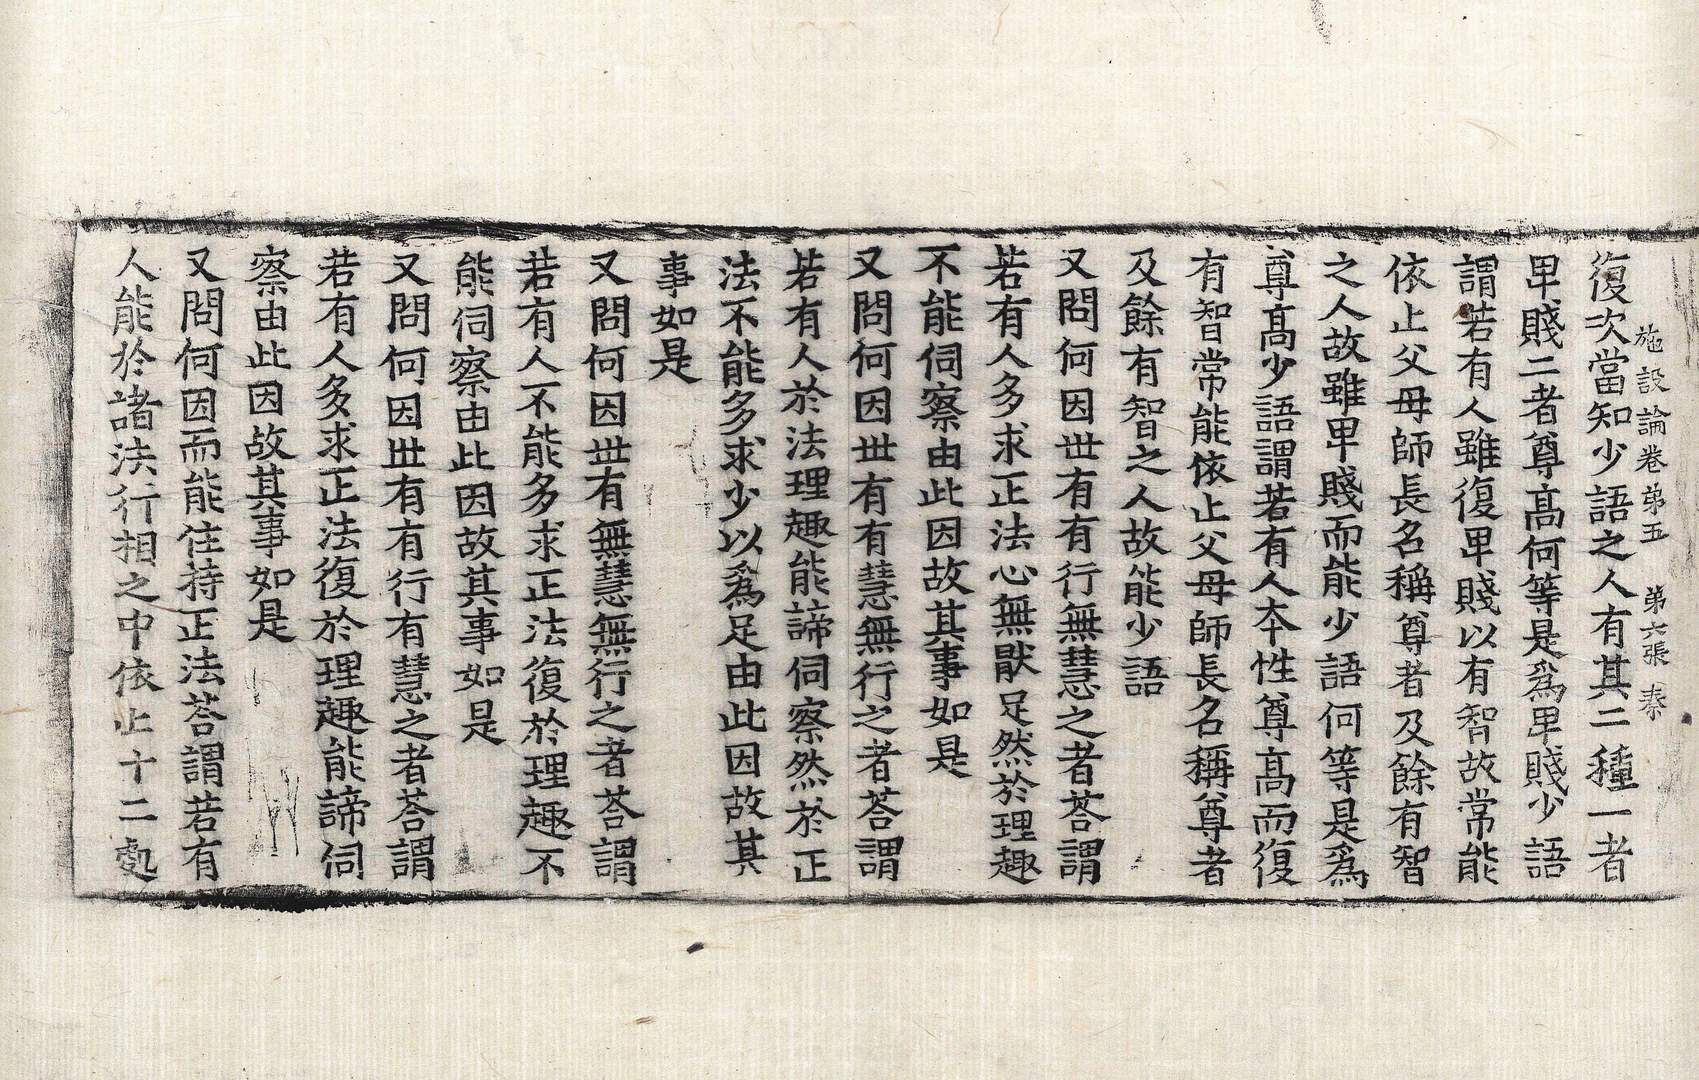 施設論卷第五 第六張 秦
復次當知少語之人有其二種一者
卑賤二者尊髙何等是爲卑賤少語
謂若有人雖復卑賤以有智故常能
依止父母師長名稱尊者及餘有智
之人故雖卑賤而能少語何等是爲
尊髙少語謂若有人本性尊髙而復
有智常能依止父母師長名稱尊者
及餘有智之人故能少語
又問何因世有有行無慧之者荅謂
若有人多求正法心無猒足然於理趣
不能伺察由此因故其事如是
又問何因世有有慧無行之者荅謂
若有人於法理趣能諦伺察然於正
法不能多求少以爲足由此因故其
事如是
又問何因世有無慧無行之者荅謂
若有人不能多求正法復於理趣不
能伺察由此因故其事如是
又問何因世有有行有慧之者荅謂
若有人多求正法復於理趣能諦伺
察由此因故其事如是
又問何因而能住持正法荅謂若有
人能於諸法行相之中依止十二處